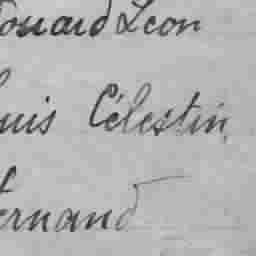 ouard Léon
uis Célestin
ernand